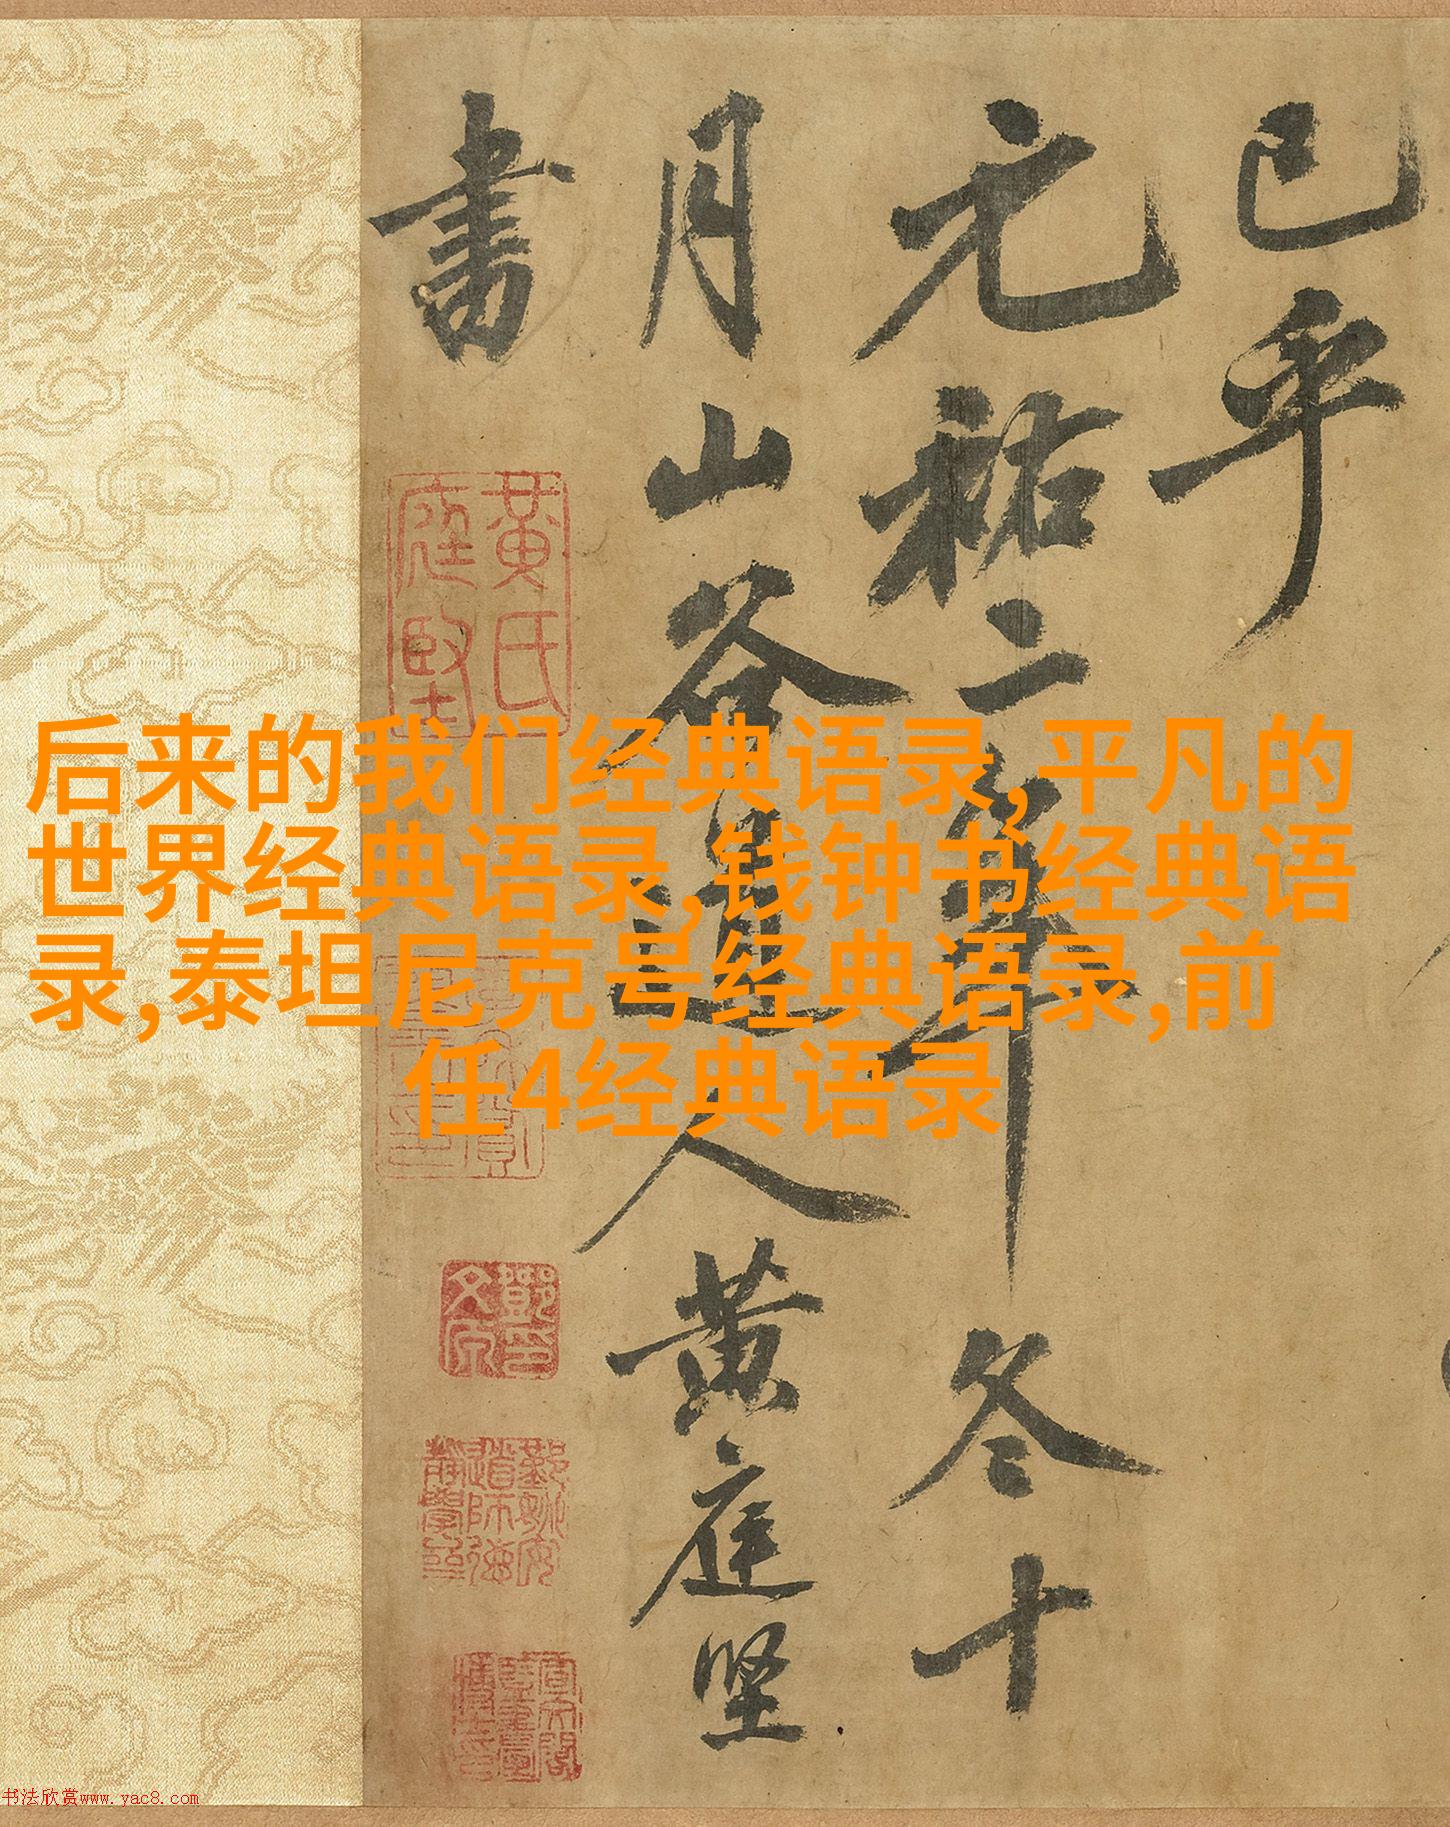 已乎
元祐二年冬十
月山谷道人黄庭坚
書
黄氏
庭堅
后来的我们经典语录,平凡的
世界经典语录,钱钟书经典语
录,泰坦尼克号经典语录,前
任4经典语录
书法欣赏www.yac8.com